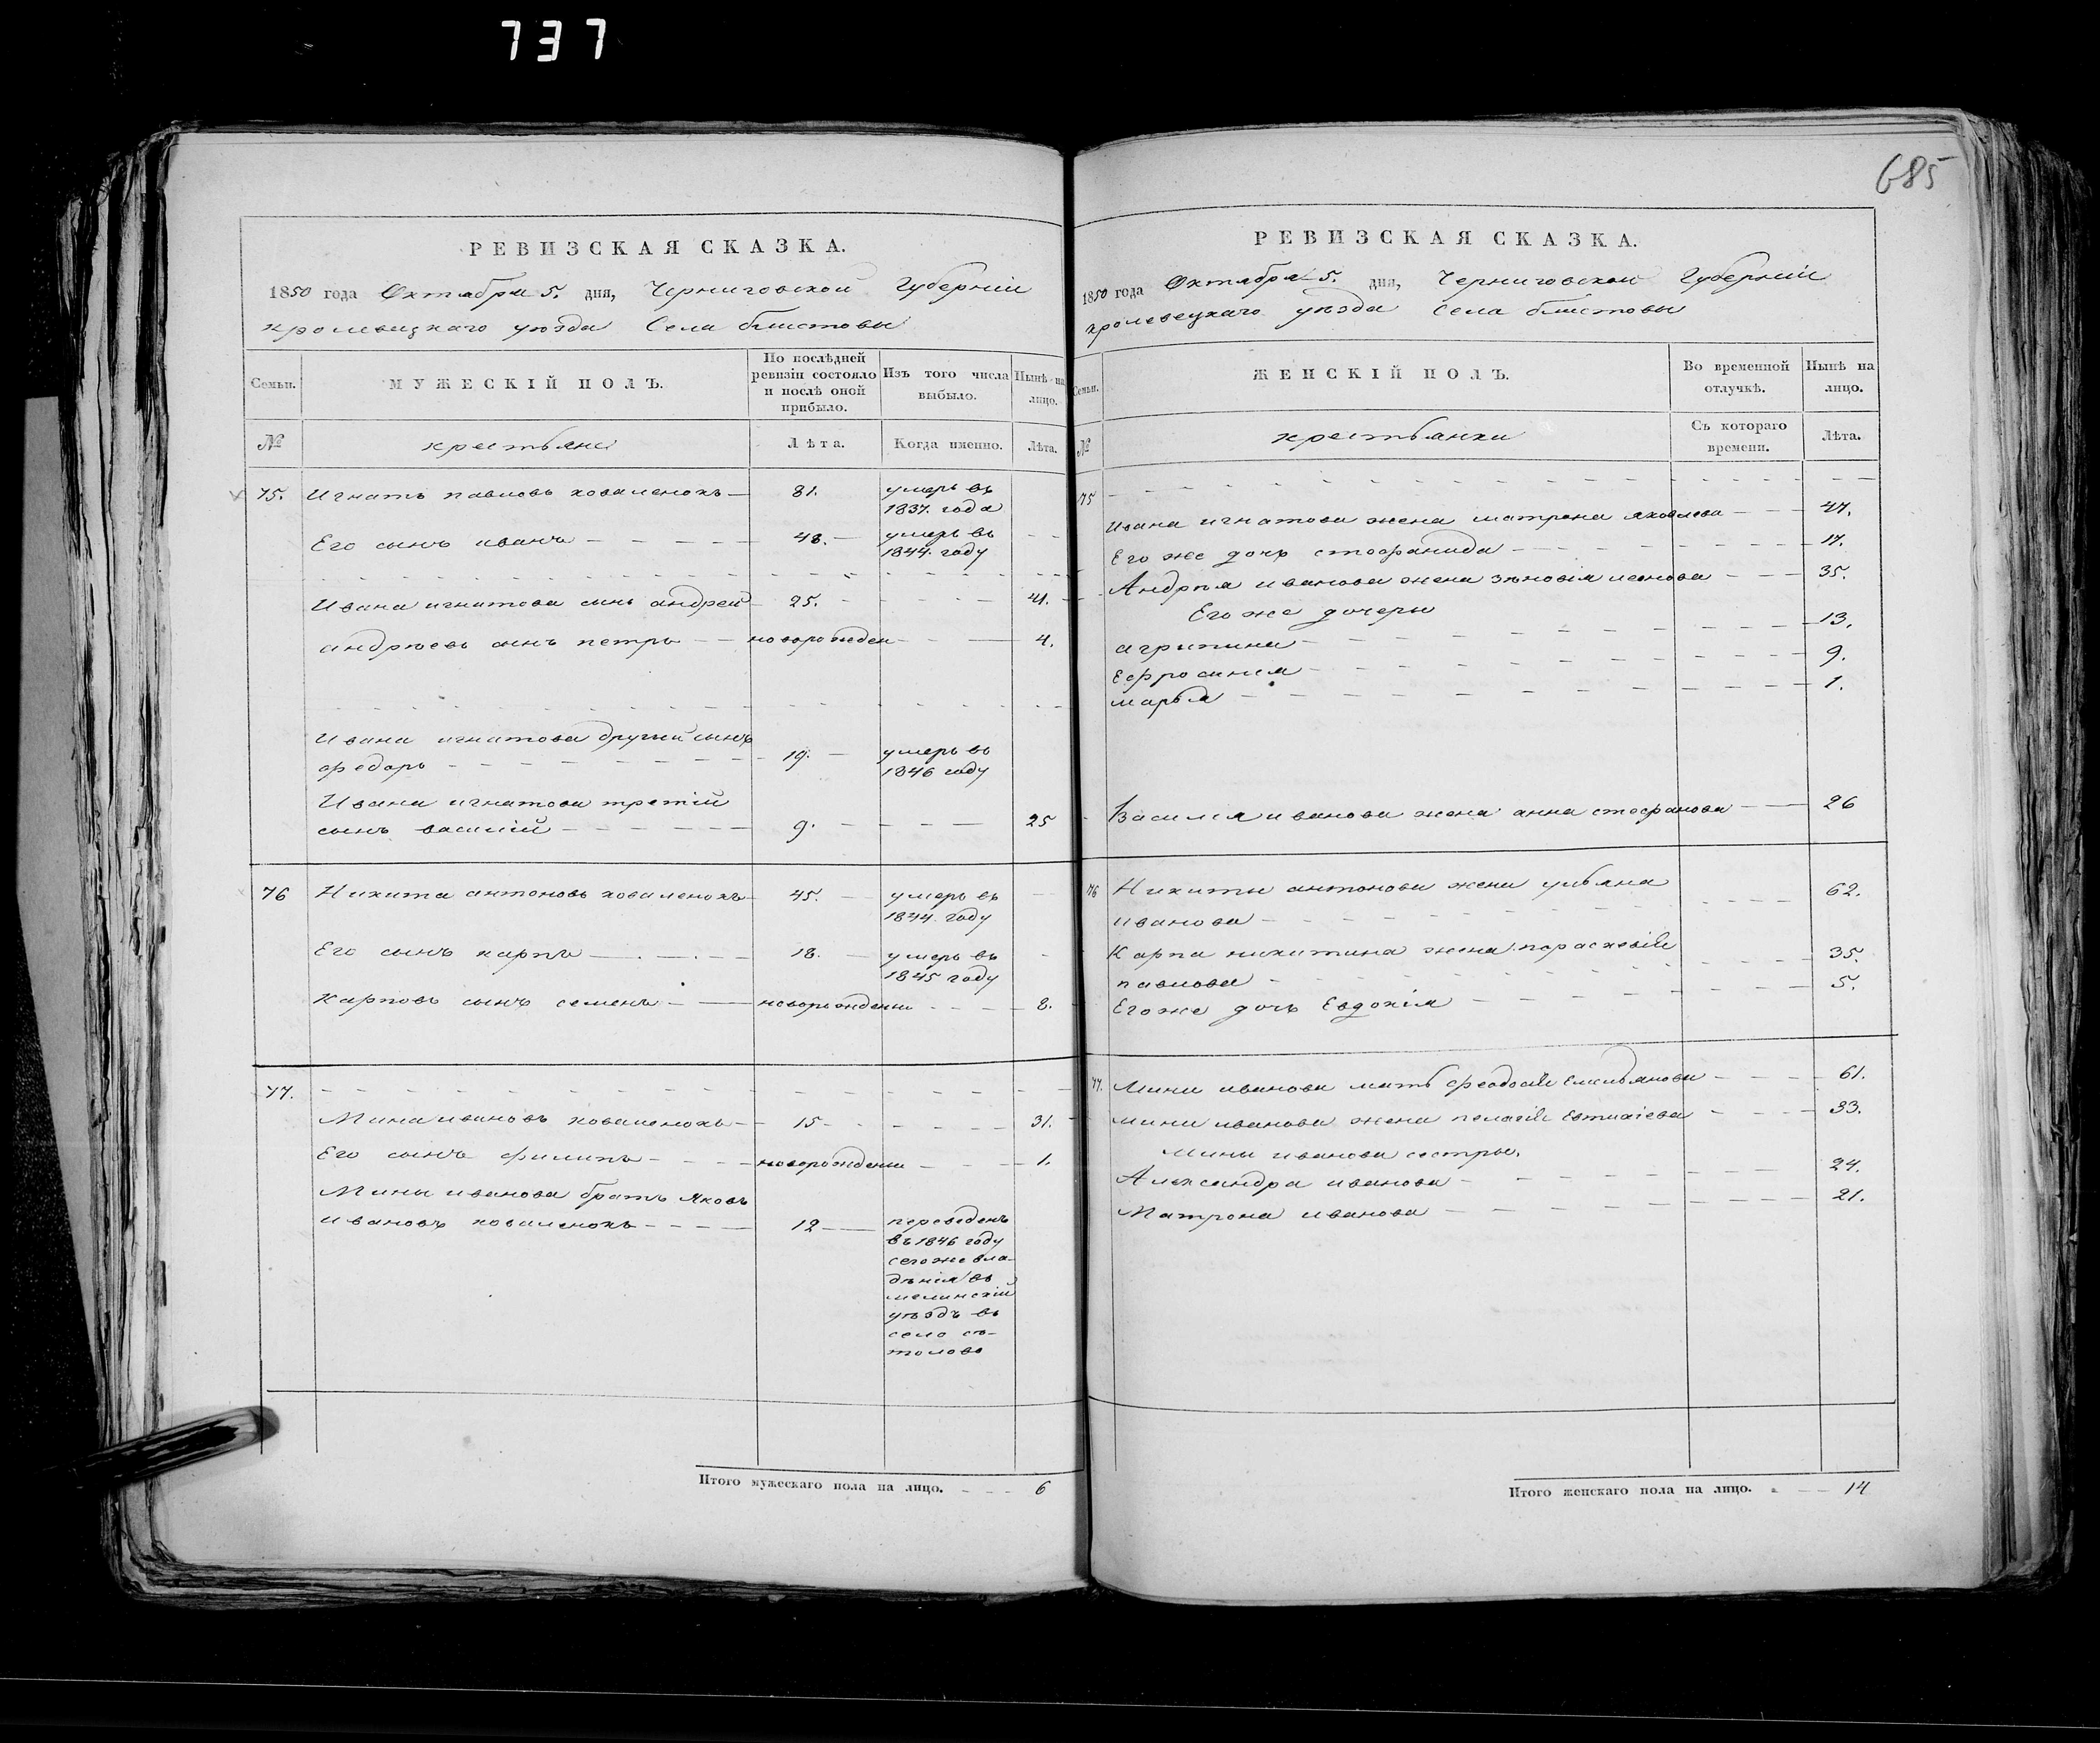 737
685
РЕВИЗСКАЯ СКАЗКА.
1850 года Октября 5. дня, Черниговской Губерніи
кролевецкаго уѣзда Села блистовы
Семьи.
МУЖЕСКІЙ ПОЛЪ.
По послѣдней ревизіи состояло и послѣ оной прибыло.
Изъ того числа выбыло.
Нынѣ на лицо.
№
крестьяне
Лѣта.
Когда именно.
Лѣта.
75. Игнатъ павловъ коваленокъ 81. умеръ въ
1837. года
Его сынъ иванъ 48. умеръ въ
1844. году
Ивана игнатова сынъ андрей 25. 41.
андрѣевъ сынъ петръ новорожден 4.
Ивана игнатова другий сынъ
федоръ 19. умеръ въ
1846 году
Ивана игнатова третій
сынъ василій 9. 25
76 Никита антоновъ коваленокъ 45. умеръ въ
1844. году
Его сынъ карпъ 18. умеръ въ
1845 году
карповъ сынъ семенъ новорожденны 8.
77.
Мина ивановъ коваленокъ 15 31.
Его сынъ филипъ новорожденны 1.
Мины иванова братъ яковъ
ивановъ коваленокъ 12 переведенъ
въ 1846 году
сегоже вла-
дѣнія въ
мглинскій
уѣздъ въ
село
Итого мужескаго пола на лицо. 6
РЕВИЗСКАЯ СКАЗКА.
1850 года Октября 5. дня, Черниговской Губерніи
кролевецкаго уѣзда Села блистовы
Семьи.
ЖЕНСКІЙ ПОЛЪ.
Во временной отлучкѣ.
Нынѣ на лицо.
№
крестьянки
Съ котораго времени.
Лѣта.
75
Ивана игнатова жена матрона яковлева 47.
Его же дочь стефанида 17.
Андрѣя иванова жена зѣновія леонова 35.
Его же дочери
агрипина 13.
Ефросинія 9.
марья 1.
Василія иванова жена анна стефанова 26
76 Никиты антонова жена ульяна
иванова 62.
Карпа никитина жена параскевія
павлова 35.
Его же дочь Евдокія 5.
77. Мины иванова мать феодосія Емельянова 61.
мины иванова жена пелагія Евтихіева 33.
Мины иванова сестры.
Александра иванова 24.
Матрона иванова 21.
Итого женскаго пола на лицо. 14